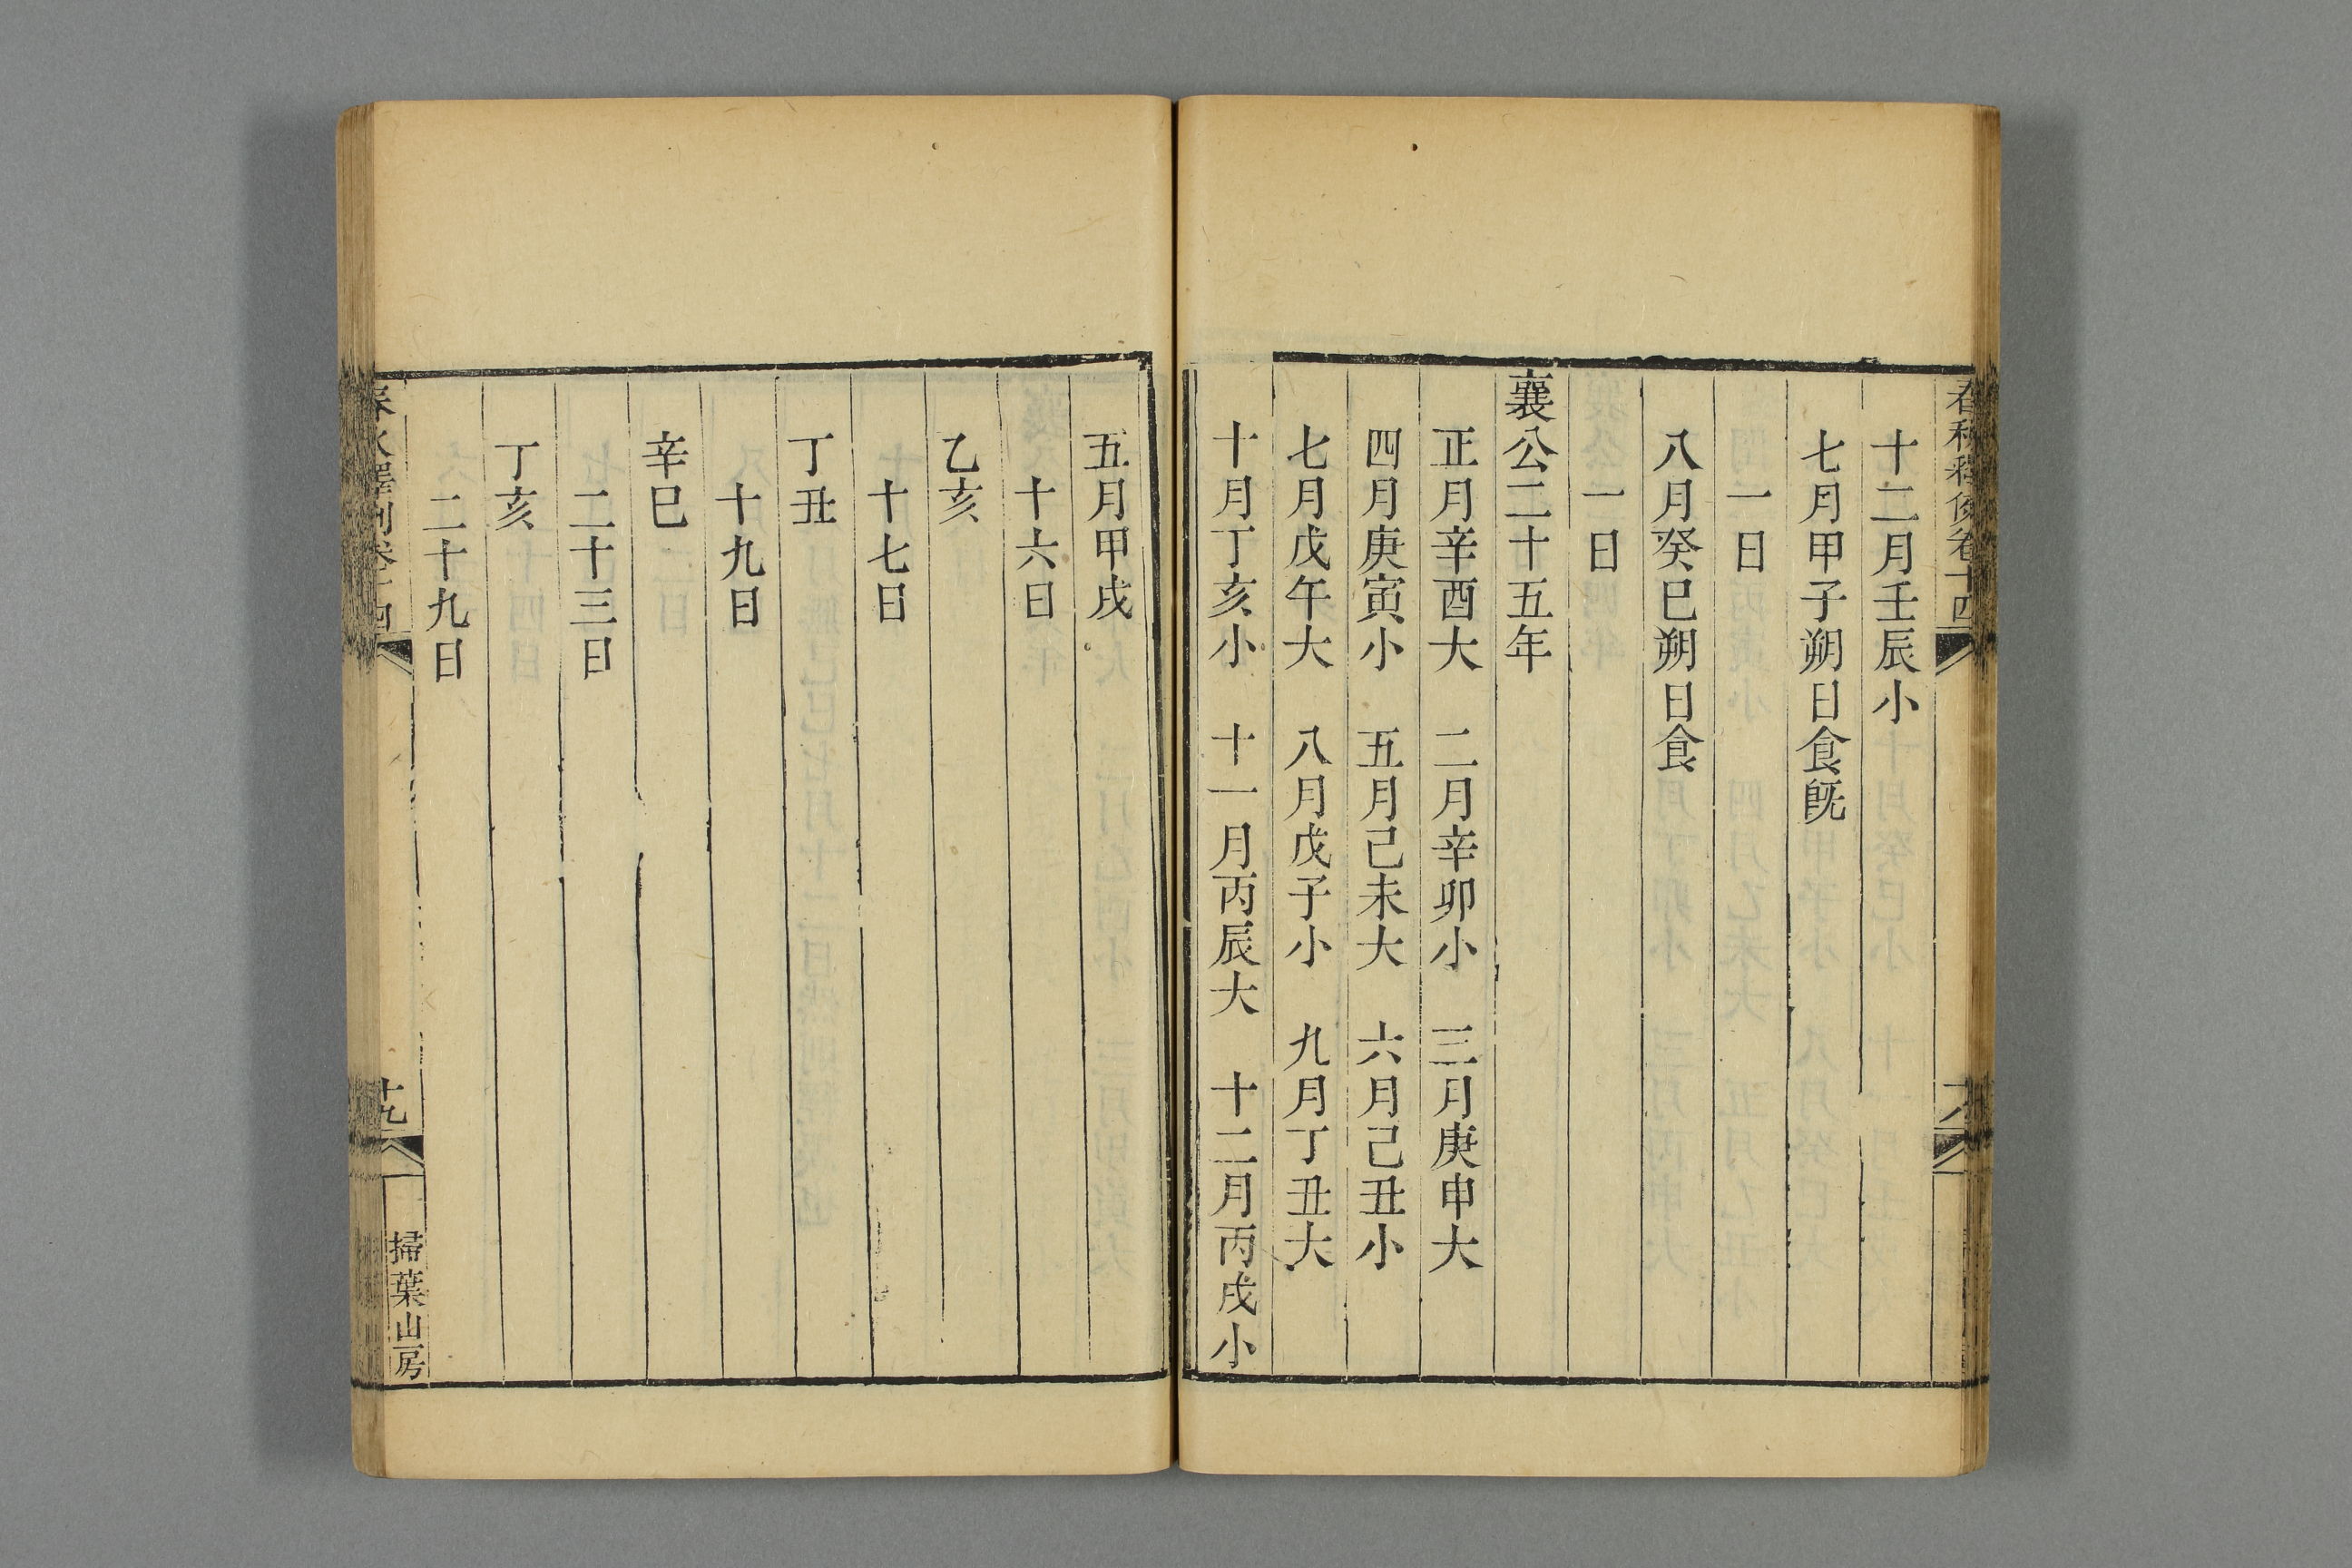 春秋釋例卷十四
十二月壬辰小
七月甲子朔日食旣
一日
八月癸巳朔日食
一日
襄公二十五年
正月辛酉大　二月辛卯小　三月庚申大
四月庚寅小　五月己未大　六月己丑小
七月戊午大　八月戊子小　九月丁丑大
十月丁亥小　十一月丙辰大　十二月丙戌小
五月甲戌
十六日
乙亥
十七日
丁丑
十九日
辛巳
二十三日
丁亥
二十九日
春秋釋例卷十四
十九
掃葉山房